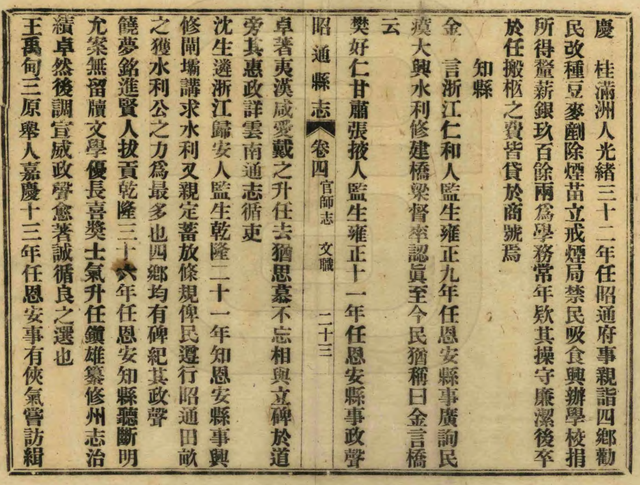 慶　桂滿洲人光緒三十二年任昭通府事親詣四鄉勸
民改種豆麥剷除煙苗立戒煙局禁民吸食興辦學校捐
所得釐薪銀玖百餘兩爲學務常年欵其操守廉潔後卒
於任搬柩之費皆貸於商號焉
知縣
金　言浙江仁和人監生雍正九年任恩安縣事廣詢民
瘼大興水利修建橋梁督率認眞至今民猶稱曰金言橋
云
樊好仁甘肅張掖人監生雍正十一年任恩安縣事政聲
昭通縣志　卷四　官師志　文職　二十三
卓著夷漢咸愛戴之升任去猶思慕不忘相與立碑於道
旁其惠政詳雲南通志循吏
沈生遴浙江歸安人監生乾隆二十一年知恩安縣事興
修閘壩講求水利又親定蓄放條規俾民遵行昭通田畝
之獲水利公之力爲最多也四鄉均有碑紀其政聲
饒夢銘進賢人拔貢乾隆三十六年任恩安知縣聽斷明
允案無留牘文學優長喜獎士氣升任鎭雄纂修州志治
績卓然後調宣威政聲愈著誠循良之選也
王禹甸三原舉人嘉慶十三年任恩安事有俠氣嘗訪緝